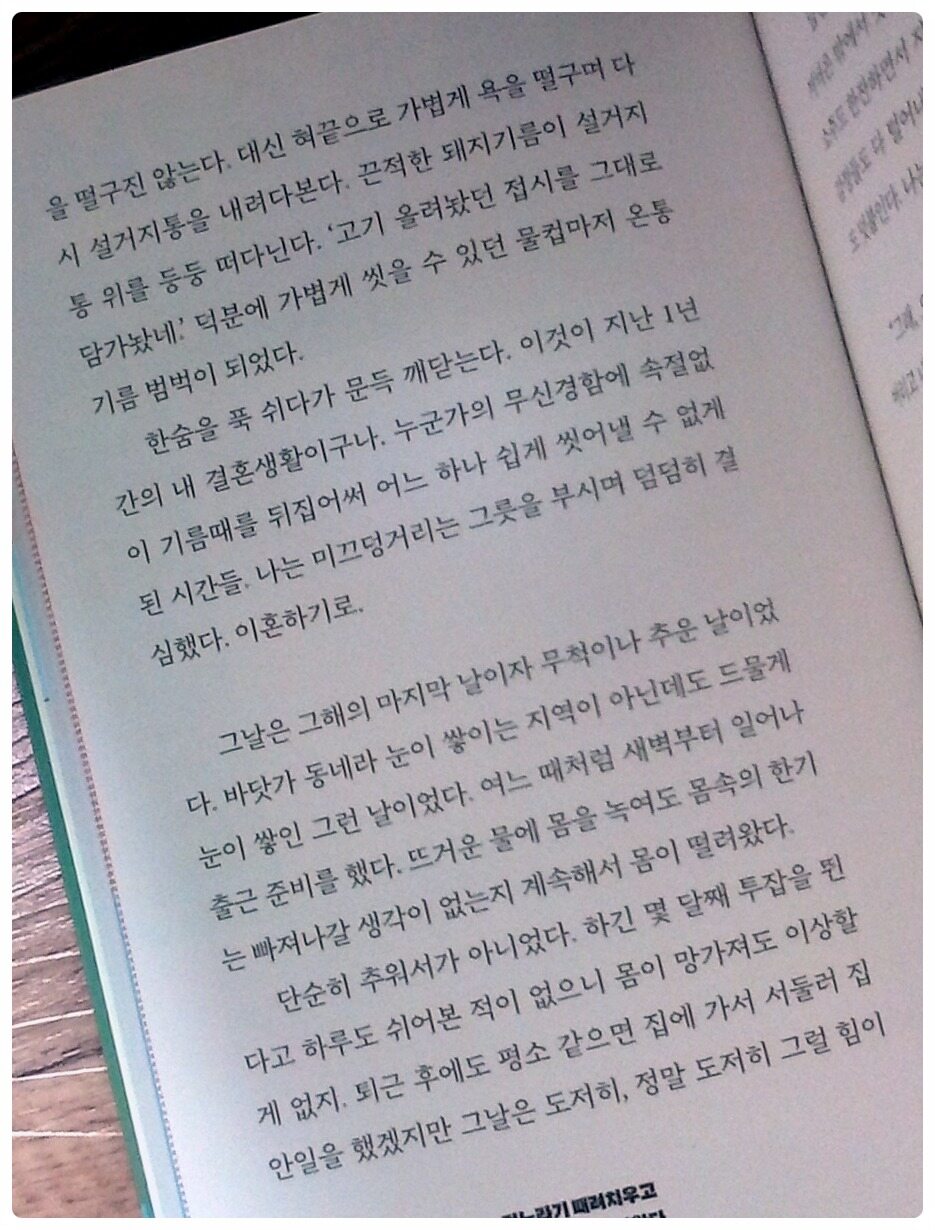 을 떨구진 않는다. 대신 혀끝으로 가볍게 욕을 떨구며 다
시 설거지통을 내려다본다. 끈적한 돼지기름이 설거지
통 위를 둥둥 떠다닌다. ‘고기 올려놨던 접시를 그대로
담가놨네.’ 덕분에 가볍게 씻을 수 있던 물컵마저 온통
기름 범벅이 되었다.
한숨을 푹 쉬다가 문득 깨닫는다. 이것이 지난 1년
간의 내 결혼생활이구나. 누군가의 무신경함에 속절없
이 기름때를 뒤집어써 어느 하나 쉽게 씻어낼 수 없게
된 시간들. 나는 미끄덩거리는 그릇을 부시며 덤덤히 결
심했다. 이혼하기로.
그날은 그해의 마지막 날이자 무척이나 추운 날이었
다. 바닷가 동네라 눈이 쌓이는 지역이 아닌데도 드물게
눈이 쌓인 그런 날이었다. 여느 때처럼 새벽부터 일어나
출근 준비를 했다. 뜨거운 물에 몸을 녹여도 몸속의 한기
는 빠져나갈 생각이 없는지 계속해서 몸이 떨려왔다.
단순히 추워서가 아니었다. 하긴 몇 달째 투잡을 뛴
다고 하루도 쉬어본 적이 없으니 몸이 망가져도 이상할
게 없지. 퇴근 후에도 평소 같으면 집에 가서 서둘러 집
안일을 했겠지만 그날은 도저히, 정말 도저히 그럴 힘이
때려치우고